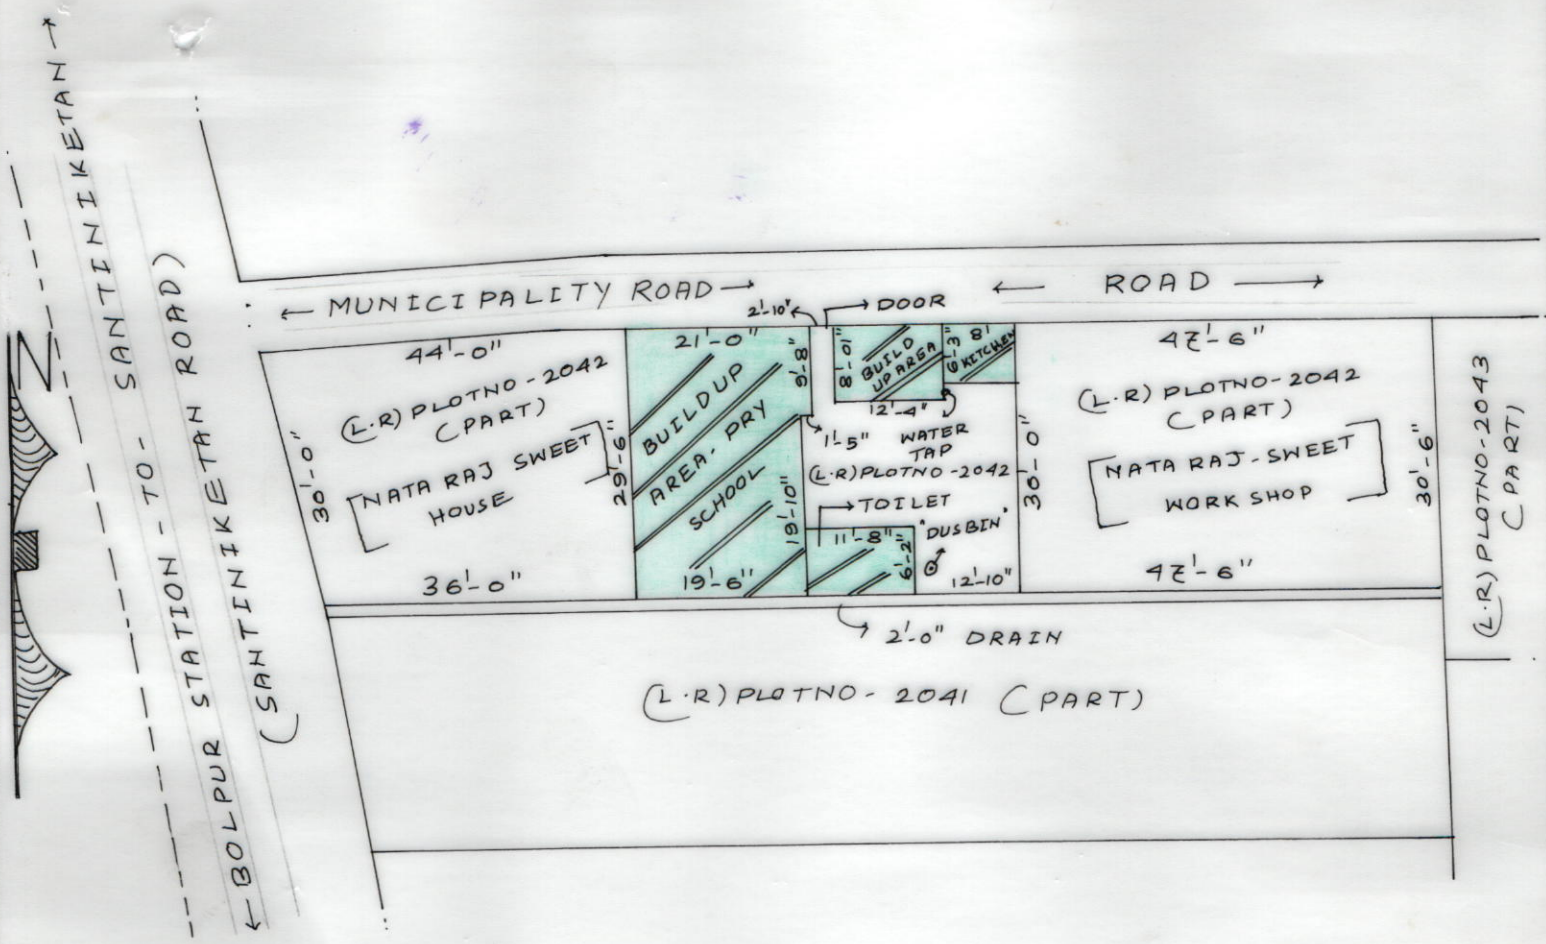 N
← BOLPUR STATION - TO - SANTINIKETAN →
(SANTINIKETAN ROAD)
← MUNICIPALITY ROAD →
← ROAD →
2'-10"
DOOR
44'-0"
(L.R) PLOTNO - 2042
(PART)
[NATA RAJ SWEET
HOUSE]
30'-0"
29'-6"
36'-0"
21'-0"
BUILDUP
AREA- PRY
SCHOOL
9'-8"
19'-10"
19'-6"
8'-01"
BUILD
UP AREA
12'-4"
6'-3"
8'
KITCHEN
1'-5"
WATER
TAP
(L.R) PLOTNO - 2042
TOILET
11'-8"
6'-2"
"DUSBIN"
12'-10"
30'-0"
47'-6"
(L.R) PLOTNO - 2042
(PART)
[NATA RAJ - SWEET
WORK SHOP]
30'-6"
47'-6"
(L.R) PLOTNO - 2043
(PART)
2'-0" DRAIN
(L.R) PLOTNO - 2041 (PART)